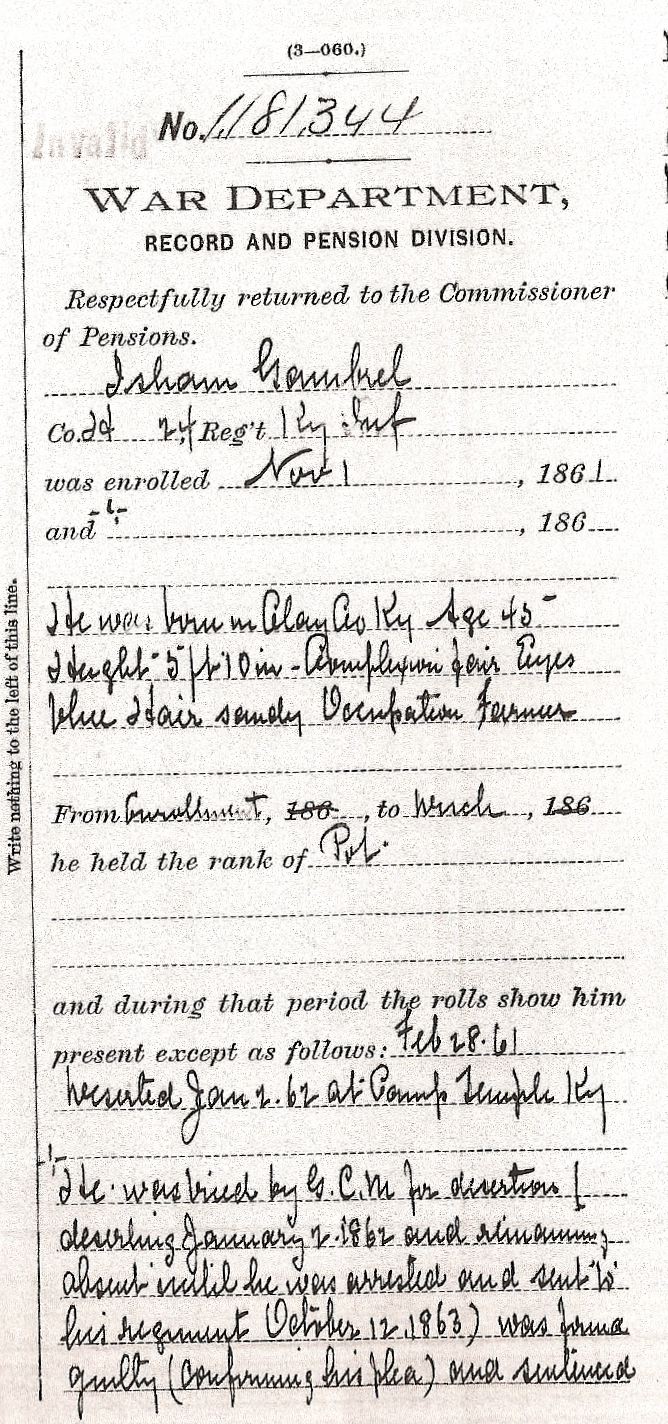 (3—060.)
Invalid
No. 1,181,344
WAR DEPARTMENT,
RECORD AND PENSION DIVISION.
Respectfully returned to the Commissioner
of Pensions.
Isham Gambrel
Co. 24 Reg't Ky Inf
was enrolled Nov 1, 1861.
and , 186
He was born in Clay Co Ky Age 45
Height 5 ft 10 in - Complexion fair Eyes
blue Hair sandy Occupation Farmer
From Enrollment, 186 , to , 186
he held the rank of Pvt.
and during that period the rolls show him
present except as follows: Feb 28.61
Deserted Jan 2. 62 at Camp Temple Ky
He was tried by G. C. M for desertion (
deserting January 2. 1862 and remaining
absent until he was arrested and sent to
his regiment October 12, 1863) was found
guilty (confirming his plea) and sentenced
Write nothing to the left of this line.